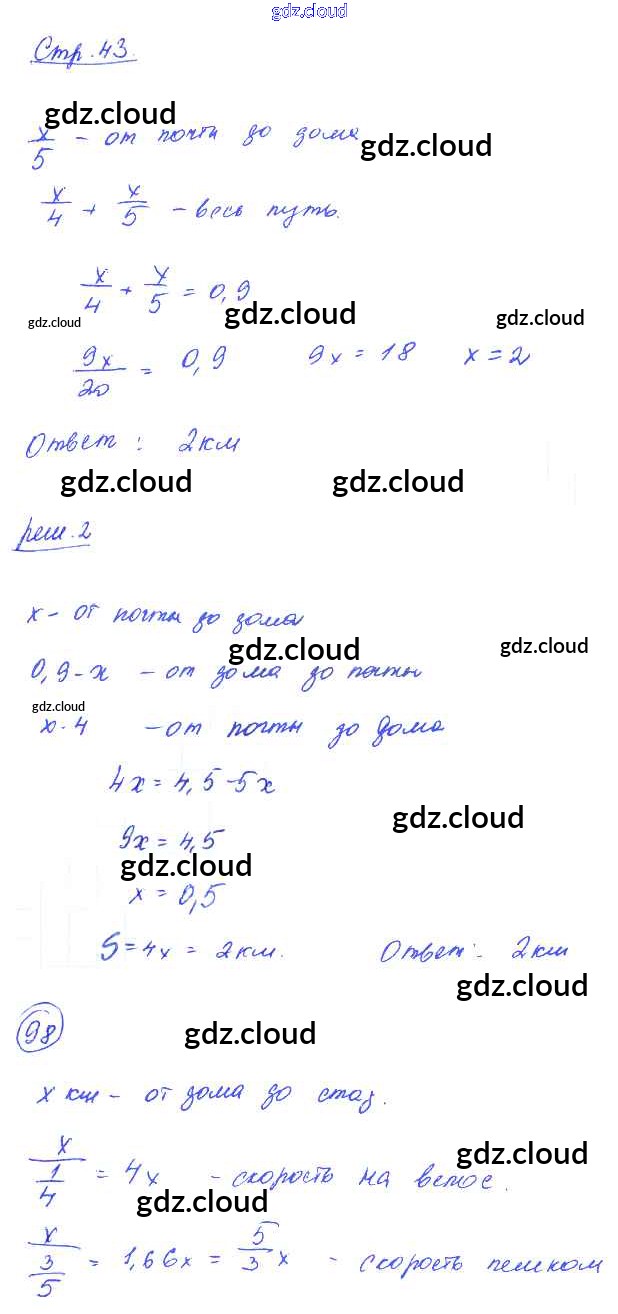 gdz.cloud
Стр. 43.
gdz.cloud
x/5 - от почты до дома
gdz.cloud
x/4 + x/5 - весь путь.
x/4 + x/5 = 0,9
gdz.cloud gdz.cloud gdz.cloud
9x/20 = 0,9 9x = 18 x = 2
Ответ: 2км
gdz.cloud gdz.cloud
реш. 2
x - от почты до дома
gdz.cloud gdz.cloud
0,9-x - от дома до почты
gdz.cloud
x·4 - от почты до дома
4x = 4,5-5x
gdz.cloud
9x = 4,5
gdz.cloud
x = 0,5
S = 4x = 2км. Ответ: 2км
gdz.cloud
98
gdz.cloud
x км - от дома до стад.
gdz.cloud
x/(1/4) = 4x - скорость на велос.
gdz.cloud
x/(3/5) = 1,66x = 5/3 x - скорость пешком